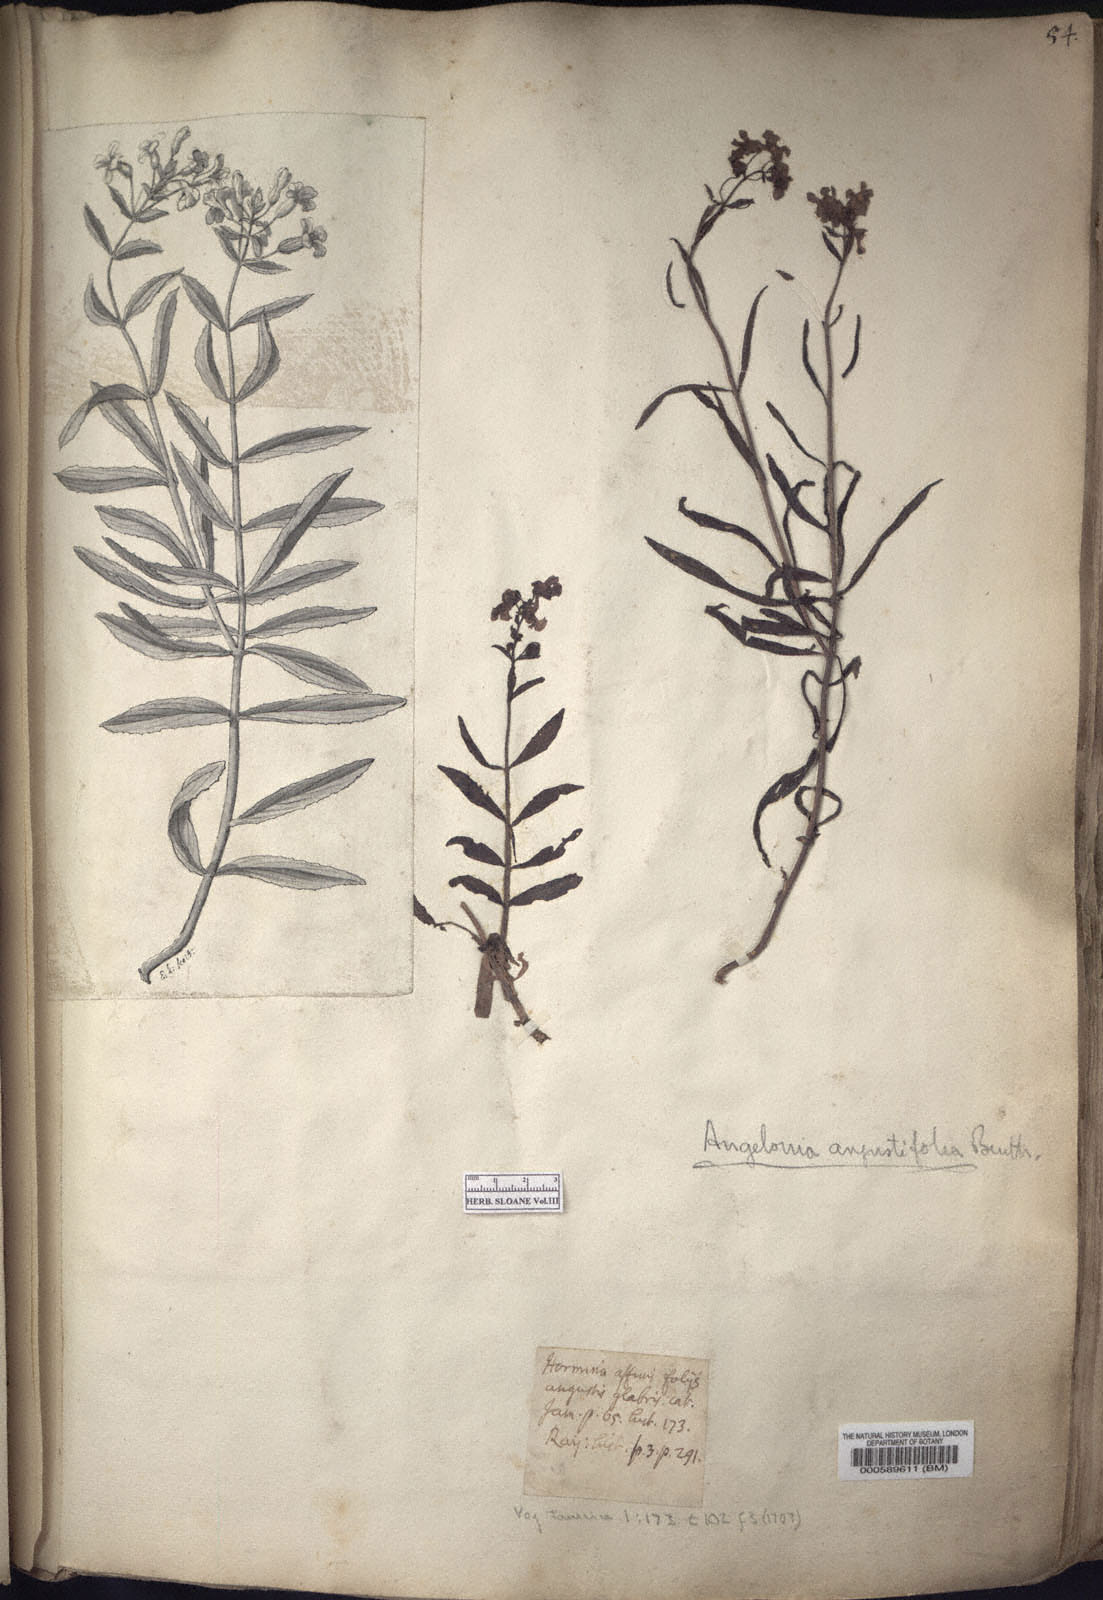 54.
Angelonia angustifolia Benth.
mm 1 2 3
HERB. SLOANE Vol.III
Hormino affinis folijs
angustis glabris. cat.
Jam. p. 65. hist. 173.
Raij: hist. p. 3. p. 291.
THE NATURAL HISTORY MUSEUM, LONDON
DEPARTMENT OF BOTANY
000589611 (BM)
Voy Jamaica 1:173 t 102 f 3 (1707)